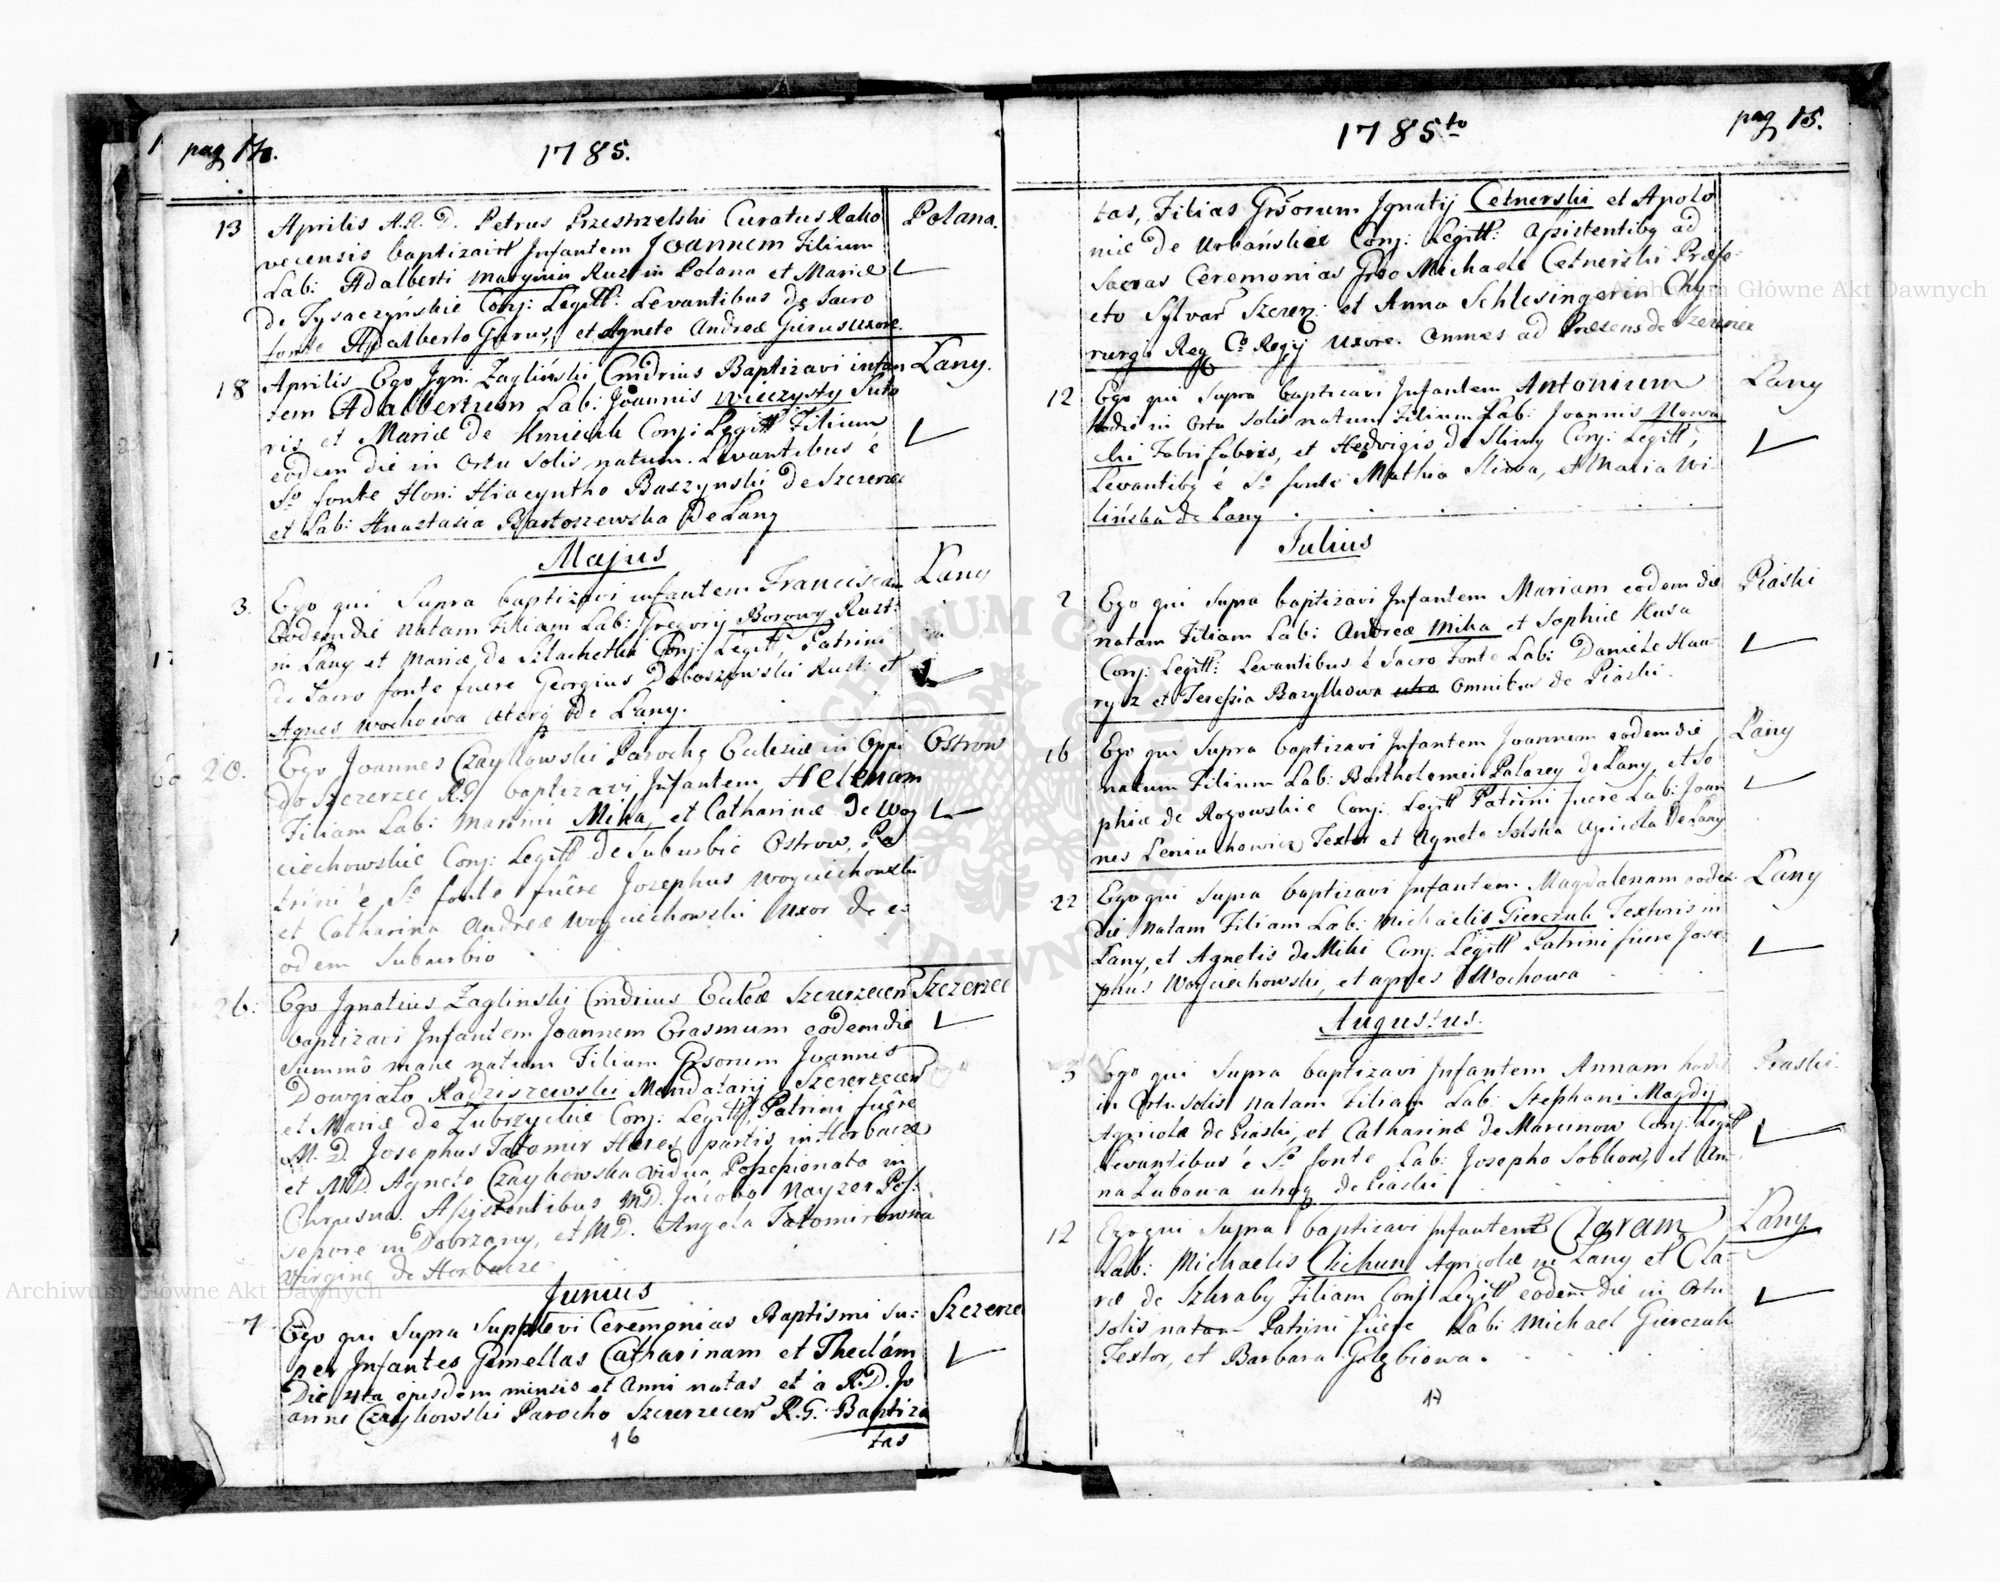 pag 14.
1785.
13 Aprilis A.R.D. Petrus Przestrzelski Curatus Rako Polana.
vecensis baptizavit Infantem Joannem Filium
Lab: Adalberti Rust: in Polana et Mariæ
de Conj: Legitt: Levantibus de Sacro
fonte Adalberto Gurus, et Agnete Andreæ Gurus uxore.
18 Aprilis Ego Ign: Zagliński Baptizavi infan Łany.
tem Adalbertum Lab: Joannis Wieczysty Suto
ris et Mariæ de Kmiecik Conj: Legitt Filium
eodem die in Ortu Solis natum. Levantibus é
So fonte Hon: Hiacyntho Baszynski de Szczerzec
et Lab: Anastasia Bartoszewska de Łany
Majus
3. Ego qui Supra baptizavi infantem Franciscam Łany
Eodem die Natam Filiam Lab: Gregorij Borowy Rust:
in Łany et Mariæ, de Conj: Legitt, Patrini
de Sacro fonte fuere Georgius Rust: et
Agnes Wochowa de Łany.
20. Ego Joannes Czaykowski Parochg Ecclesiæ in Oppi Ostrow
do Szczerzec R.G. baptizavi Infantem Helenam
Filiam Lab: Martini Mika, et Catharinæ de Woy
ciechowskie Conj: Legitt de Suburbio Ostrow, Pa
trini é So fonte fuêre Josephus Woyciechowski
et Catharina Andreæ Woyciechowski Uxor de e=
odem Suburbio
26. Ego Ignatius Zaglinski Ecclæ Szczerzecen Szczerzec
baptizavi Infantem Joannem Erasmum eodem die
Summô mane natum Filium Gnsorum Joannis
Dowgiało Radziszewski Mandatarij Szczerzecen
et Mariæ de Zubrzyckie Conj: Legitt, Patrini fuêre
M.D. Josephus Tatomir Hæres partis in Horbacze
et M.D. Agneta Czaykowska Vidua, Possessionata in
Chrusna. Assistentibus M.D. Jacobo Nayzer Pos=
sesore in Dobrzany, et M.D. Angela Tatomirowna
Virgine de Horbacze
Junius
7 Ego qui Supra Supplevi Ceremonias Baptismi Su= Szczerzec
per Infantes Gemellas Catharinam et Theclám
Die 4ta ejusdem mensis et Anni natas et a R.D. Jo
anne Czaykowski Parocho Szczerzecen R.G. Baptiza
tas
16
1785to
pag 15.
tas, Filias Gnsorum Ignatij Cetnerski et Apolo
niæ de Urbańskie Conj: Legitt: Assistentibg ad
Sacras Ceremonias Gnso Michaele Cetnerski Præfe=
cto Sylvar Szczerz: et Anna Schlesingerin Chy
rurgi Reg Regij Uxore. Omnes ad Præsens de Szczerzec
12 Ego qui Supra baptizavi Infantem Antonium Łany
hodie in Ortu Solis natum Filium Lab: Joannis Nowa
cki Fabri et Hedvigis de Sliwy Conj: Legitt,
Levantibg é So fonte Mathia Sliwa, et Maria Wi=
lińska de Łany
Julius
2 Ego qui Supra baptizavi Infantem Mariam eodem die Piaski
natam Filiam Lab: Andreæ Mika et Sophiæ Kusa
Conj: Legitt: Levantibus é Sacro Fonte Lab: Daniele Hau=
rysz et Teressia Bazylkowa Omnibus de Piaski.
16 Ego qui Supra baptizavi Infantem Joannem eodem die Łany
natum Filium Lab: Bartholomei Palarey de Łany, et So
phiæ de Rogowskie Conj: Legitt Patrini fuere Lab: Joan
nes Textor et Agneta Solska Agricola de Łany
22 Ego qui Supra baptizavi Infantem Magdalenam eodem Łany
die Natam Filiam Lab: Michaelis Gierczak Textoris in
Łany, et Agnetis de Miki Conj: Legitt Patrini fuere Jose=
phus Woyciechowski, et agnes Wochowa
Augustus.
5 Ego qui Supra baptizavi Infantem Annam hodie Piaski.
in Ortu solis natam Filiam Lab: Stephani Magdij
Agricolæ de Piaski, et Catharinæ de Marcinow Conj: Legitt
Levantibus é So fonte Lab: Josepho Sobkow, et An=
na Zubowa de Piaski
12 Ego qui Supra baptizavi Infantem Claram Łany
Lab: Michaelis Cichun Agricolæ in Łany et Cla=
ræ de Szkraby Filiam Conj Legitt eodem die in Ortu
solis natam Patrini fuere Lab: Michael Gierczak
Textor, et Barbara Golębiowa.
17
Archiwum Główne Akt Dawnych
Archiwum Główne Akt Dawnych
ARCHIWUM GŁÓWNE AKT DAWNYCH